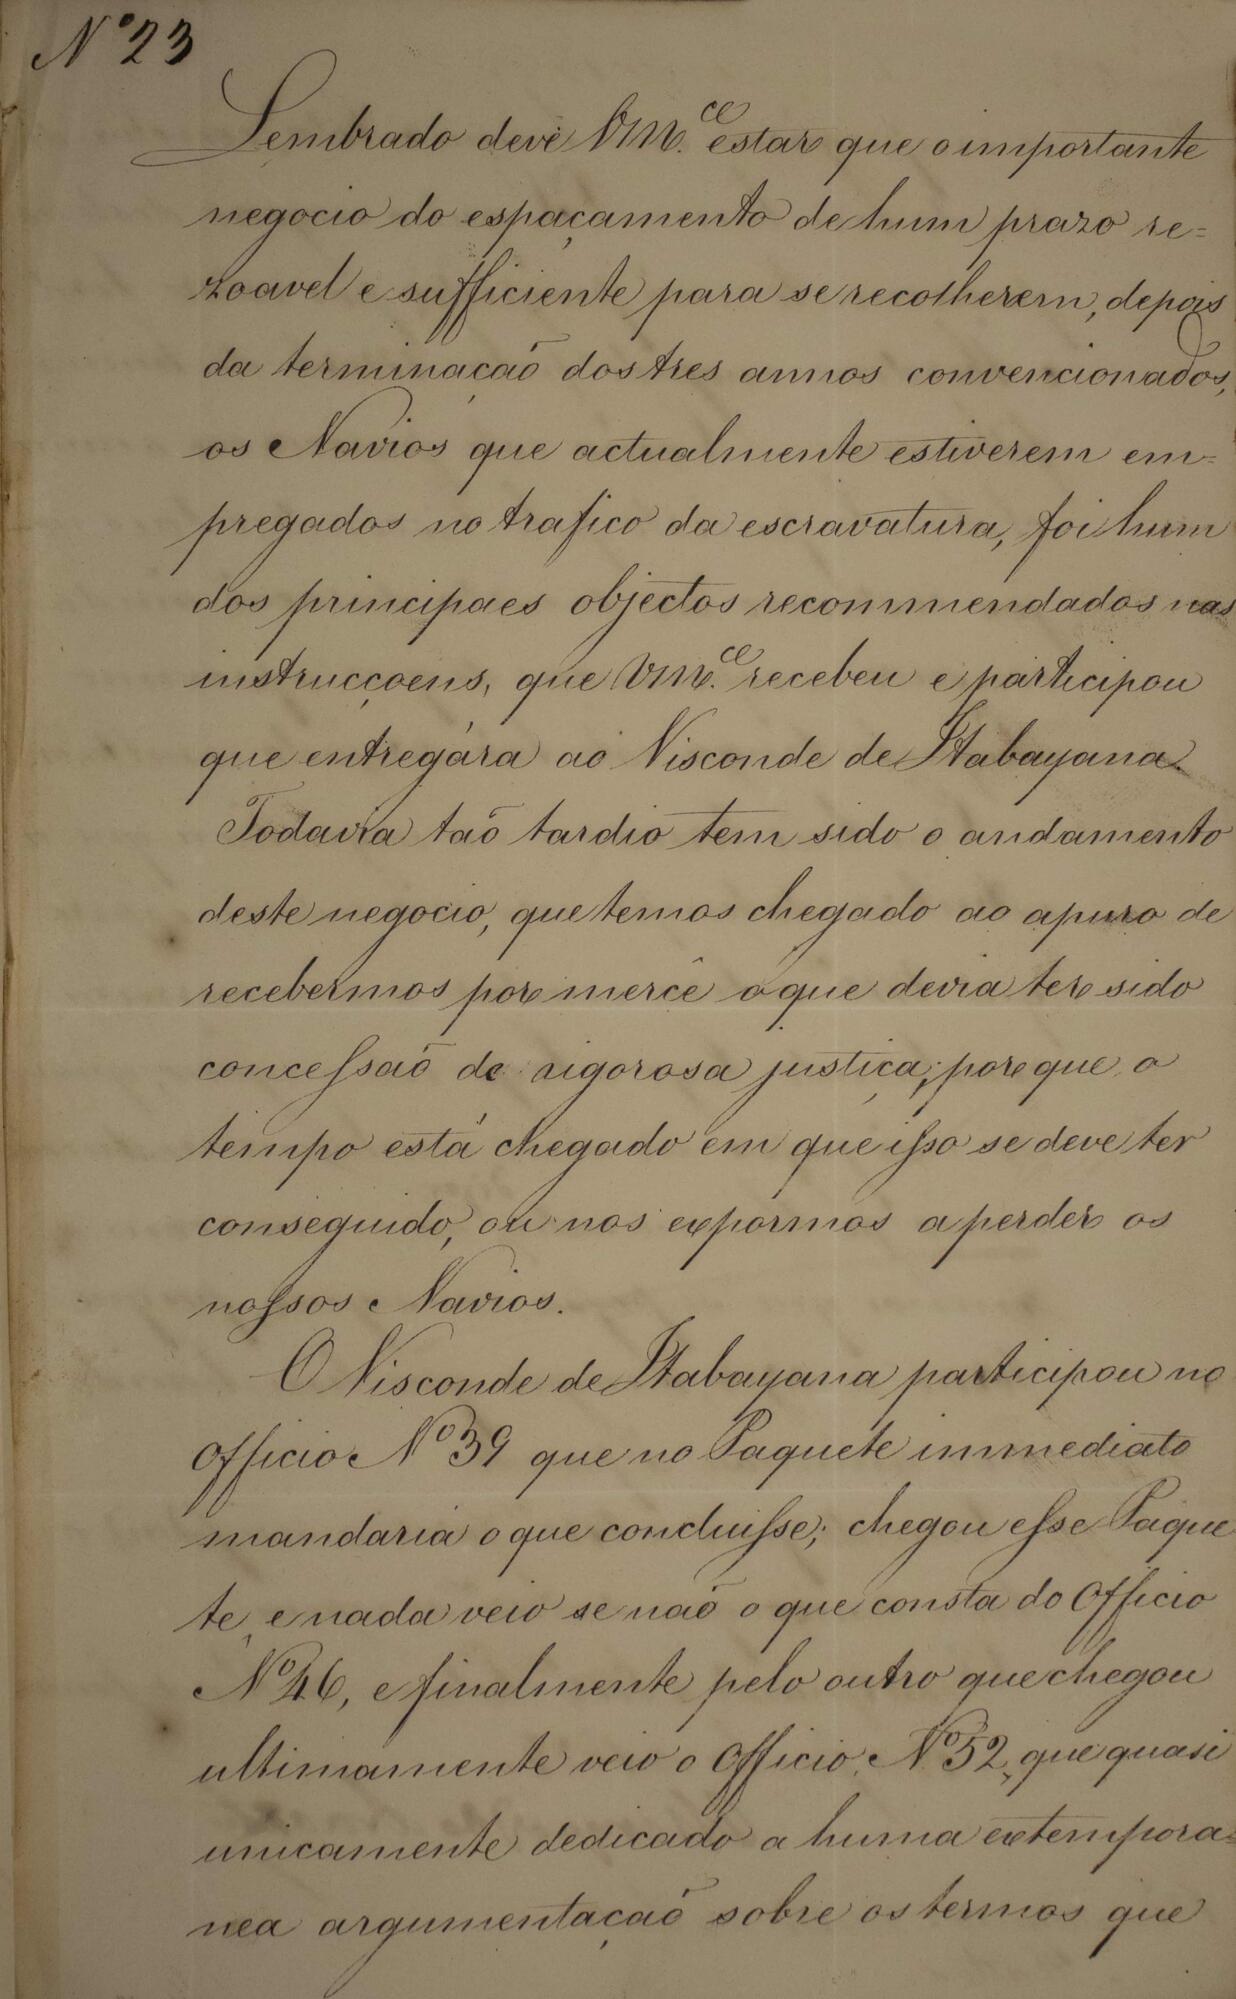 Nº 23
Lembrado deve VM.ce estar que o importante
negocio do espaçamento de hum prazo re=
zoavel e sufficiente para se recolherem, depois
da terminação dos tres annos convencionados,
os Navios que actualmente estiverem em=
pregados no trafico da escravatura, foi hum
dos principaes objectos recommendados nas
instrucçoens, que VM.ce recebeu e participou
que entregára ao Visconde de Itabayana.
Todavia taõ tardio tem sido o andamento
deste negocio, que temos chegado ao apuro de
recebermos por mercê o que devia ter sido
concessaõ de rigorosa justiça; porque o
tempo está chegado em que isso se deve ter
conseguido, ou nos expormos a perder os
nossos Navios.
O Visconde de Itabayana participou no
Officio Nº 39 que no Paquete immediato
mandaria o que concluisse; chegou esse Paque
te, e nada veio se naõ o que consta do Officio
Nº 46, e finalmente pelo outro que chegou
ultimamente veio o Officio Nº 52, que quasi
unicamente dedicado a huma extempora=
nea argumentaçaõ sobre os termos que